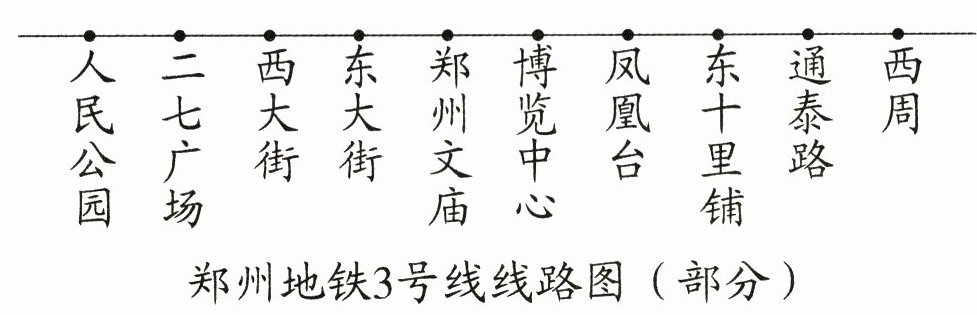 人民公园
二七广场
西大街
东大街
郑州文庙
博览中心
凤凰台
东十里铺
通泰路
西周
郑州地铁3号线线路图（部分）